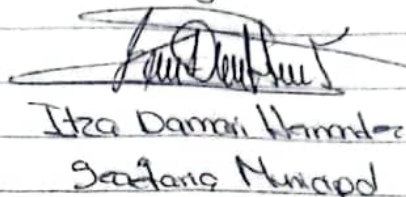 Itza Damari Hernandez
Secretaria Municipal